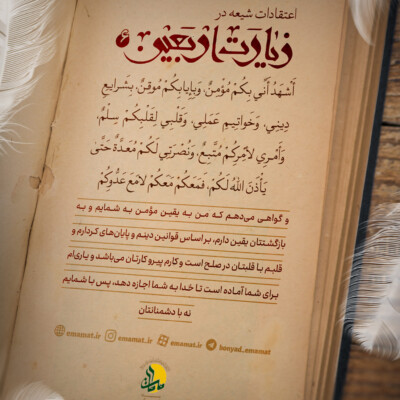 اعتقادات شیعه در
زیارت اربعین ۶
أَشْهَدُ أَنّي بِكُمْ مُؤْمِنٌ، وَبِإِيابِكُمْ مُوقِنٌ، بِشَرايِعِ
دِيني، وَخَواتِيمِ عَمَلي، وَقَلْبي لِقَلْبِكُمْ سِلْمٌ،
وَأَمْري لأَمْرِكُمْ مُتَّبِعٌ، وَنُصْرَتي لَكُمْ مُعَدَّةٌ حَتّىٰ
يَأْذَنَ اللهُ لَكُمْ، فَمَعَكُمْ مَعَكُمْ لامَعَ عَدُوِّكُمْ
و گواهی می‌دهم که من به یقین مؤمن به شمایم و به
بازگشتتان یقین دارم، بر اساس قوانین دینم و پایان‌های کردارم و
قلبم با قلبتان در صلح است و کارم پیرو کارتان می‌باشد و یاری‌ام
برای شما آماده است تا خدا به شما اجازه دهد، پس با شمایم
نه با دشمنانتان
emamat.ir emamat.ir emamat.ir bonyad_emamat